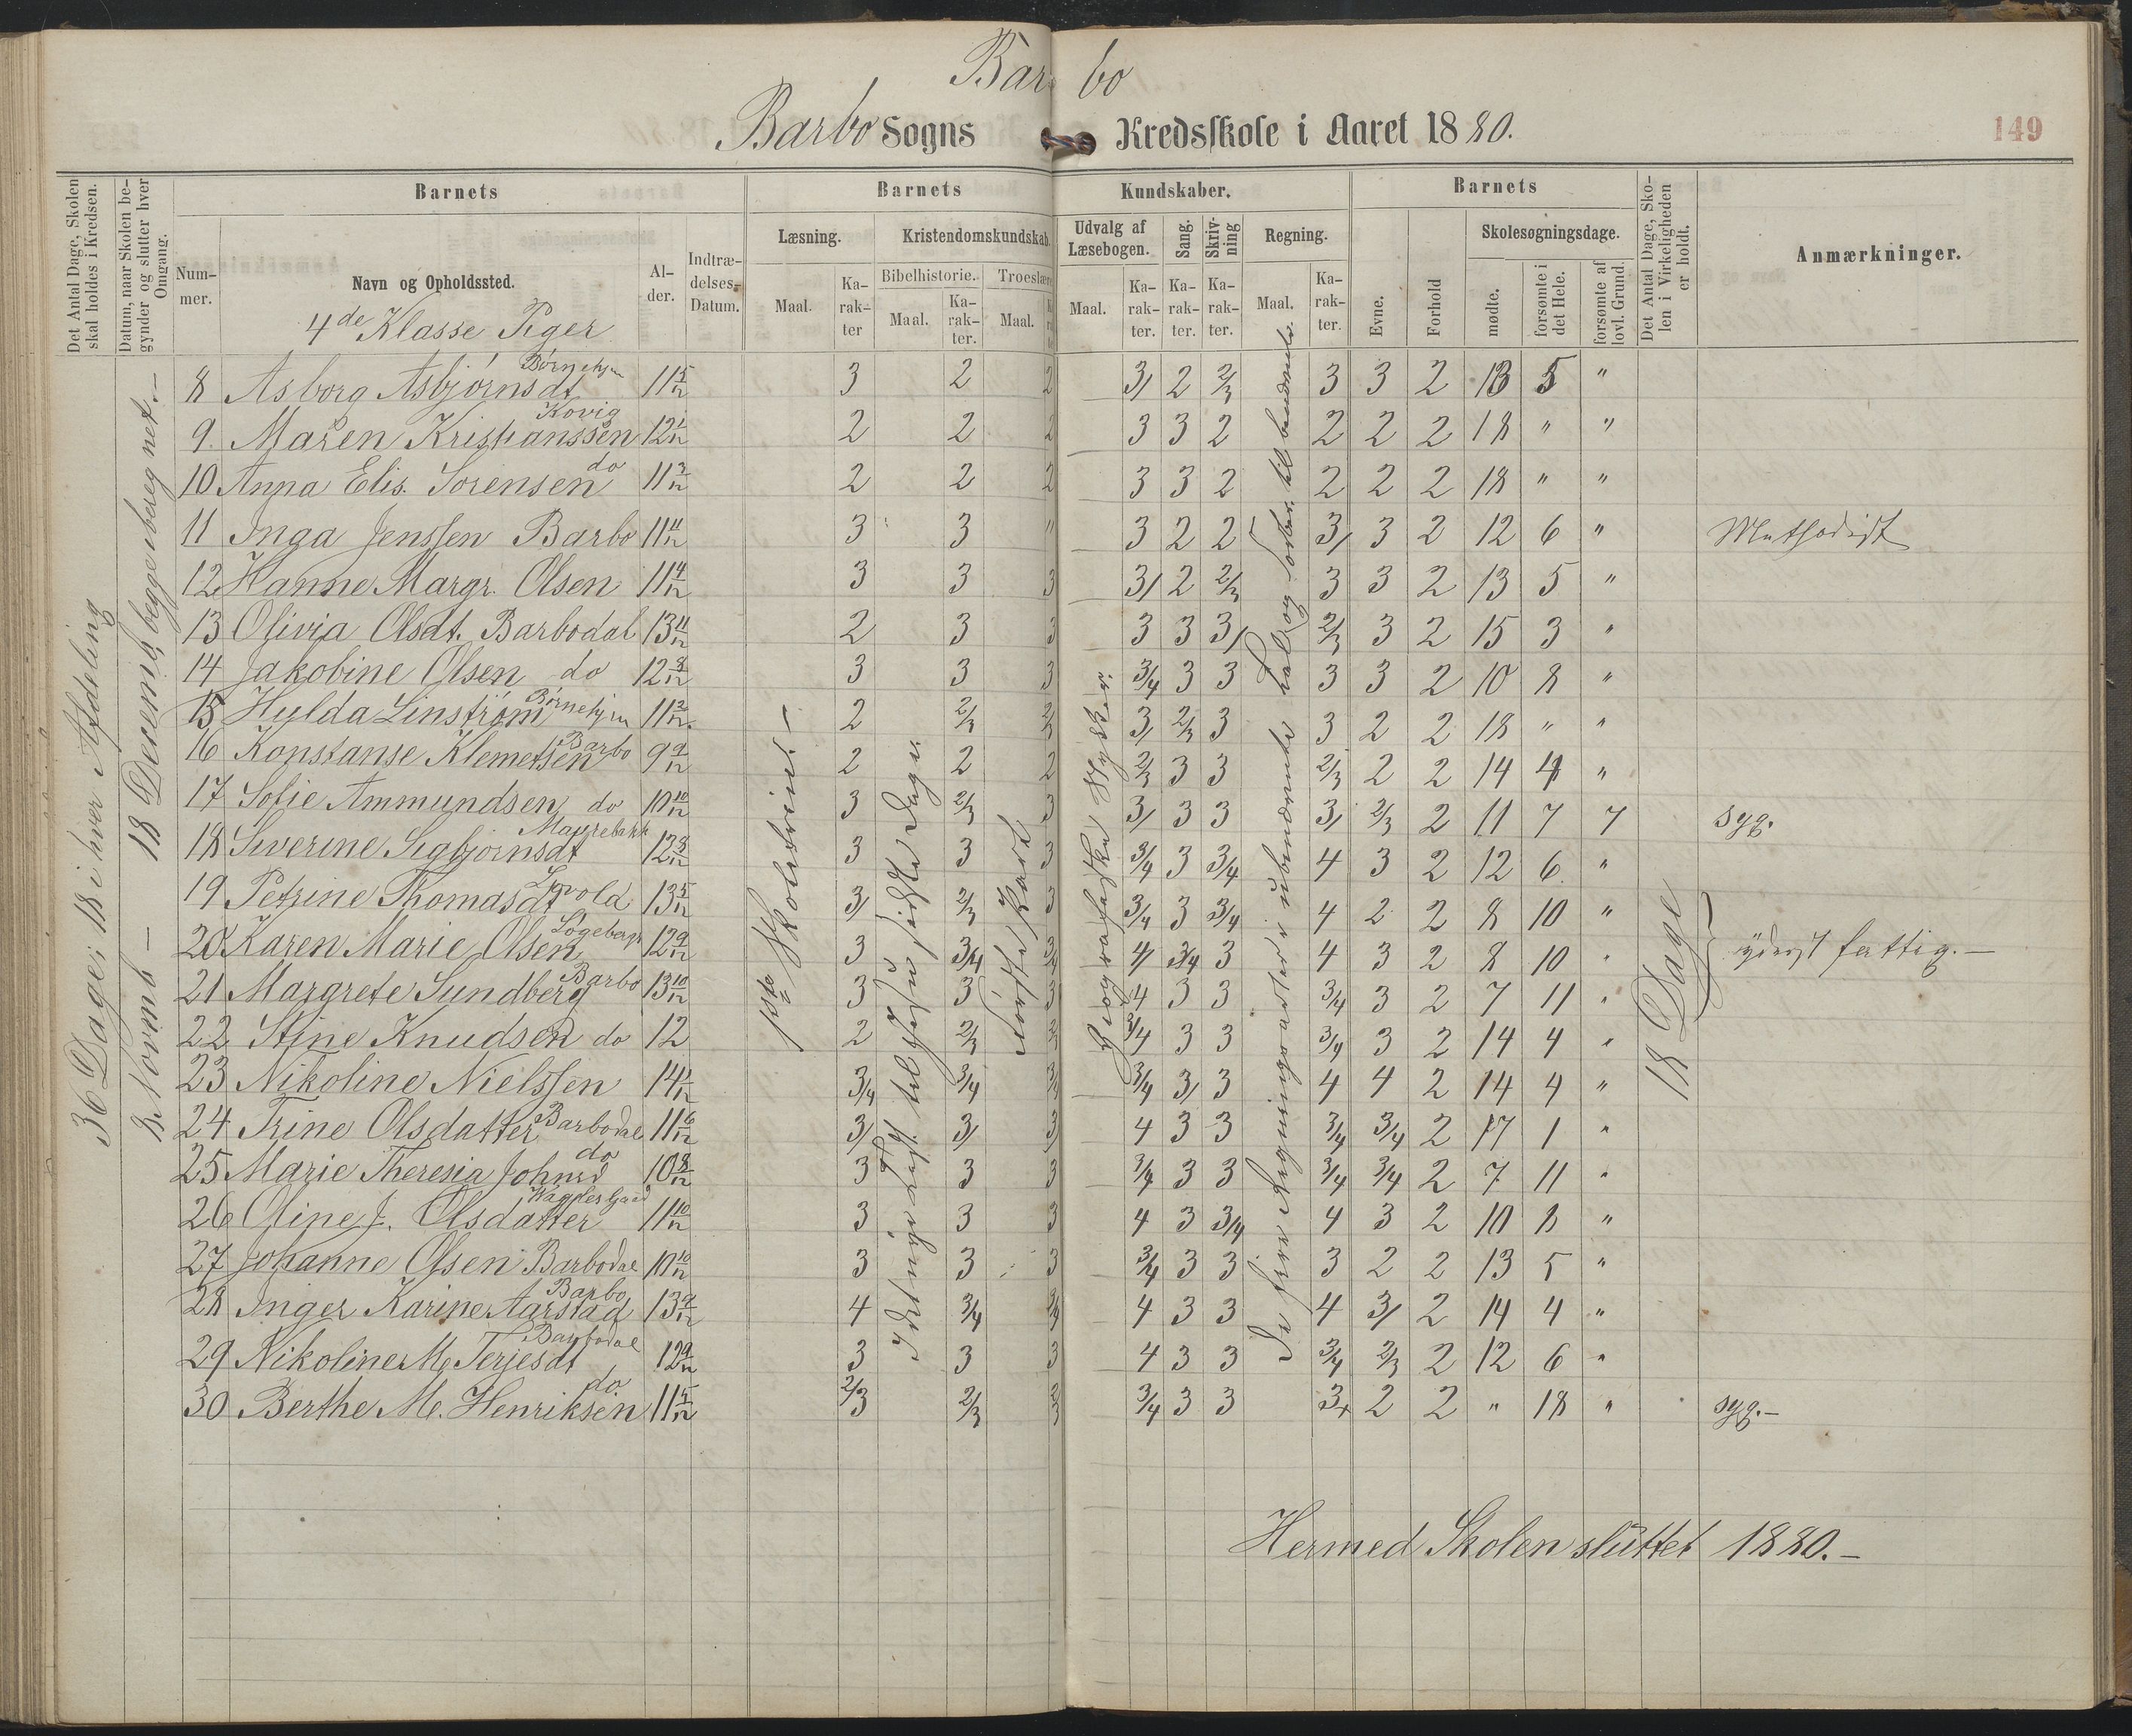 Barbo
Barbo Sogns Kredsskole i Aaret 1880.
149
Det Antal Dage, Skolen skal holdes i Kredsen.
Datum, naar Skolen begynder og slutter hver Omgang.
Barnets
Barnets
Kundskaber.
Barnets
Det Antal Dage, Skolen i Virkeligheden er holdt.
Anmærkninger.
Nummer.
Navn og Opholdssted.
Alder.
Indtrædelses-Datum.
Læsning.
Kristendomskundskab.
Udvalg af Læsebogen.
Sang.
Skrivning
Regning.
Evne.
Forhold
Skolesøgningsdage.
Bibelhistorie.
Troeslære
Maal.
Karakter
Maal.
Karakter.
Maal.
Maal.
Karakter.
Karakter.
Karakter.
Maal.
Karakter.
mødte.
forsømte i det Hele.
forsømte af lovl. Grund.
4de Klasse Piger
36 Dage; 18 i hver Afdeling
18 Decemb, begge iberegnet.-
1ste Skoletrin.-
første Part
Geografiske Stykker.
18 Dage
8 Asborg Asbjørnsdt Børnehjem 11 5/12 3 2 2 3/ 2 2/3 3 3 2 13 5 "
9. Maren Kristianssen Kovig 12 1/12 2 2 2 3 3 2 2 2 2 18 " "
10 Anna Elis. Sorensen do 11 3/12 2 2 2 3 3 2 2 2 2 18 " "
11 Inga Jenssen Barbo 11 11/12 3 3 " 3 2 2 3/ 3 2 12 6 " Methodist
12 Hanne Margr. Olsen 11 4/12 3 3 3 3/ 2 2/3 3 3 2 13 5 "
13 Olivia Olsdt. Barbodal 13 11/12 2 3 3 3 3 3/ 2/3 3 2 15 3 "
14 Jakobine Olsen do 12 8/12 3 3 3 3/4 3 3 3 3 2 10 8 "
15 Hylda Linstrøm Børnehjem 11 2/12 2 2/3 2/3 3/ 2/3 3 3 2 2 18 " "
16 Konstanse Klemetsen Barbo 9 9/12 2 2 2 2/3 3 3 2/3 2 2 14 4 "
17 Sofie Ammundsen do 10 10/12 3 2/3 3 3/ 3 3 3/ 2/3 2 11 7 7 syg.
18 Severine Sigbjørnsdt 12 8/12 3 3 3 3/4 3 3/4 4 3 2 12 6. "
19 Petrine Thomasdt 13 5/12 3/ 2/3 3 3/4 3 3/4 4 2 2 8 10 "
20 Karen Marie Olsen 12 9/12 3 3/4 3/4 4/ 3/4 3 4 3 2 8 10 " yderst fattig.-
21 Margrete Sundberg Barbo 13 10/12 3 3 3 4 3 3 3/4 3 2 7 11 "
22 Stine Knudsen do 12 2 2/3 2/3 3/4 3 3 3/4 3 2 14 4 "
23 Nikoline Nielssen 14 1/12 3/4 3/4 3/4 3/4 3/ 3 4 4 2 14 4 "
24 Trine Olsdatter Barbodal 11 6/12 3/ 3/ 3/ 4 3 3 3/4 3/4 2 17 1 "
25 Marie Theresia Johnsd do 10 8/12 3 3 3 3/4 3 3 3/4 3/4 2 7 11 "
26 Oline J. Olsdatter 11 10/12 3 3 3 4 3 3/4 4 3 2 10 8 "
27 Johanne Olsen Barbodal 10 10/12 3 3 3 3/4 3 3 3 2 2 13 5 "
28 Inger Karine Aarstad Barbo 13 9/12 4 3/4 3/4 4 3 3 4 3/ 2 14 4 "
29 Nikoline M. Terjesdt Barbodal 12 9/12 3 3 3 4 3 3 3/4 2/3 2 12 6 "
30 Berthe M. Henriksen do 11 5/12 2/3 2/3 2/3 3/4 3 3 3+ 2 2 " 18 " syg.-
Hermed Skolen sluttet 1880.-